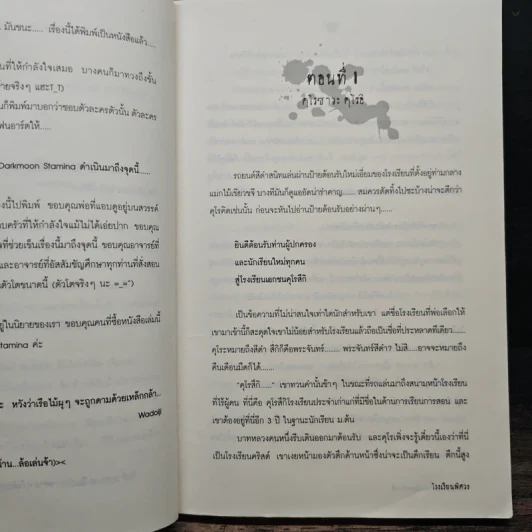 มันชนะ..... เรื่องนี้ได้พิมพ์เป็นหนังสือแล้ว....
นที่ให้กำลังใจเสมอ บางคนก็มาทวงถึงชั้น
ายจริงๆ แฮะT_T)
นก็พิมพ์มาบอกว่าชอบตัวละครตัวนั้น ตัวละคร
ฟนอาร์ตให้.....
Darkmoon Stamina ดำเนินมาถึงจุดนี้.....
องนี้ไปพิมพ์ ขอบคุณพ่อที่แอบดูอยู่บนสวรรค์
อบครัวที่ให้กำลังใจแม้ไม่ได้เอ่ยปาก ขอบคุณ
ที่ช่วยเข็นเรื่องนี้มาถึงจุดนี้ ขอบคุณอาจารย์ที่
และอาจารย์ที่อัสสัมชัญศึกษาทุกท่านที่สั่งสอน
ตัวโตขนาดนี้ (ตัวโตจริงๆ นะ =_=")
ยู่ในนิยายของเรา ขอบคุณคนที่ซื้อหนังสือเล่มนี้
tamina ค่ะ
ะ หวังว่าเรือไม้ผุๆ จะถูกตามด้วยเหล็กกล้า...
Wadoiji
าน...ล้อเล่นจ้า)><
ตอนที่ 1
คุโรซาวะ คุโรอิ
รถยนต์สีดำสนิทเล่นผ่านป้ายต้อนรับใหม่เอี่ยมของโรงเรียนที่ตั้งอยู่ท่ามกลาง
แมกไม้เขียวขจี บางทีมันก็ดูแออัดน่ารำคาญ...... สมควรตัดทิ้งไปซะบ้างน่าจะดีกว่า
คุโรคิดเช่นนั้น ก่อนจะหันไปอ่านป้ายต้อนรับอย่างผ่านๆ......
ยินดีต้อนรับท่านผู้ปกครอง
และนักเรียนใหม่ทุกคน
สู่โรงเรียนเอกชนคุโรสึกิ
เป็นข้อความที่ไม่น่าสนใจเท่าใดนักสำหรับเขา แต่ชื่อโรงเรียนที่พ่อเลือกให้
เขามาเข้านี้ก็สะดุดใจเขาไม่น้อยสำหรับโรงเรียนแล้วถือเป็นชื่อที่ประหลาดทีเดียว.......
คุโระหมายถึงสีดำ สึกิก็คือพระจันทร์...... พระจันทร์สีดำ? ไม่สิ....อาจจะหมายถึง
คืนเดือนมืดก็ได้......
"คุโรสึกิ......" เขาทวนคำนั้นช้าๆ ในขณะที่รถแล่นมาถึงสนามหน้าโรงเรียน
ที่ไร้ผู้คน ที่นี่คือ คุโรสึกิโรงเรียนประจำเก่าแก่ที่มีชื่อในด้านการเรียนการสอน และ
เขาต้องอยู่ที่นี่อีก 3 ปี ในฐานะนักเรียน ม.ต้น
บาทหลวงคนหนึ่งรีบเดินออกมาต้อนรับ และคุโรเพิ่งจะรู้เดี๋ยวนี้เองว่าที่นี่
เป็นโรงเรียนคริสต์ เขาเงยหน้ามองตัวตึกด้านหน้าซึ่งน่าจะเป็นตึกเรียน ตึกนี้สูง
โรงเรียนพิศวง